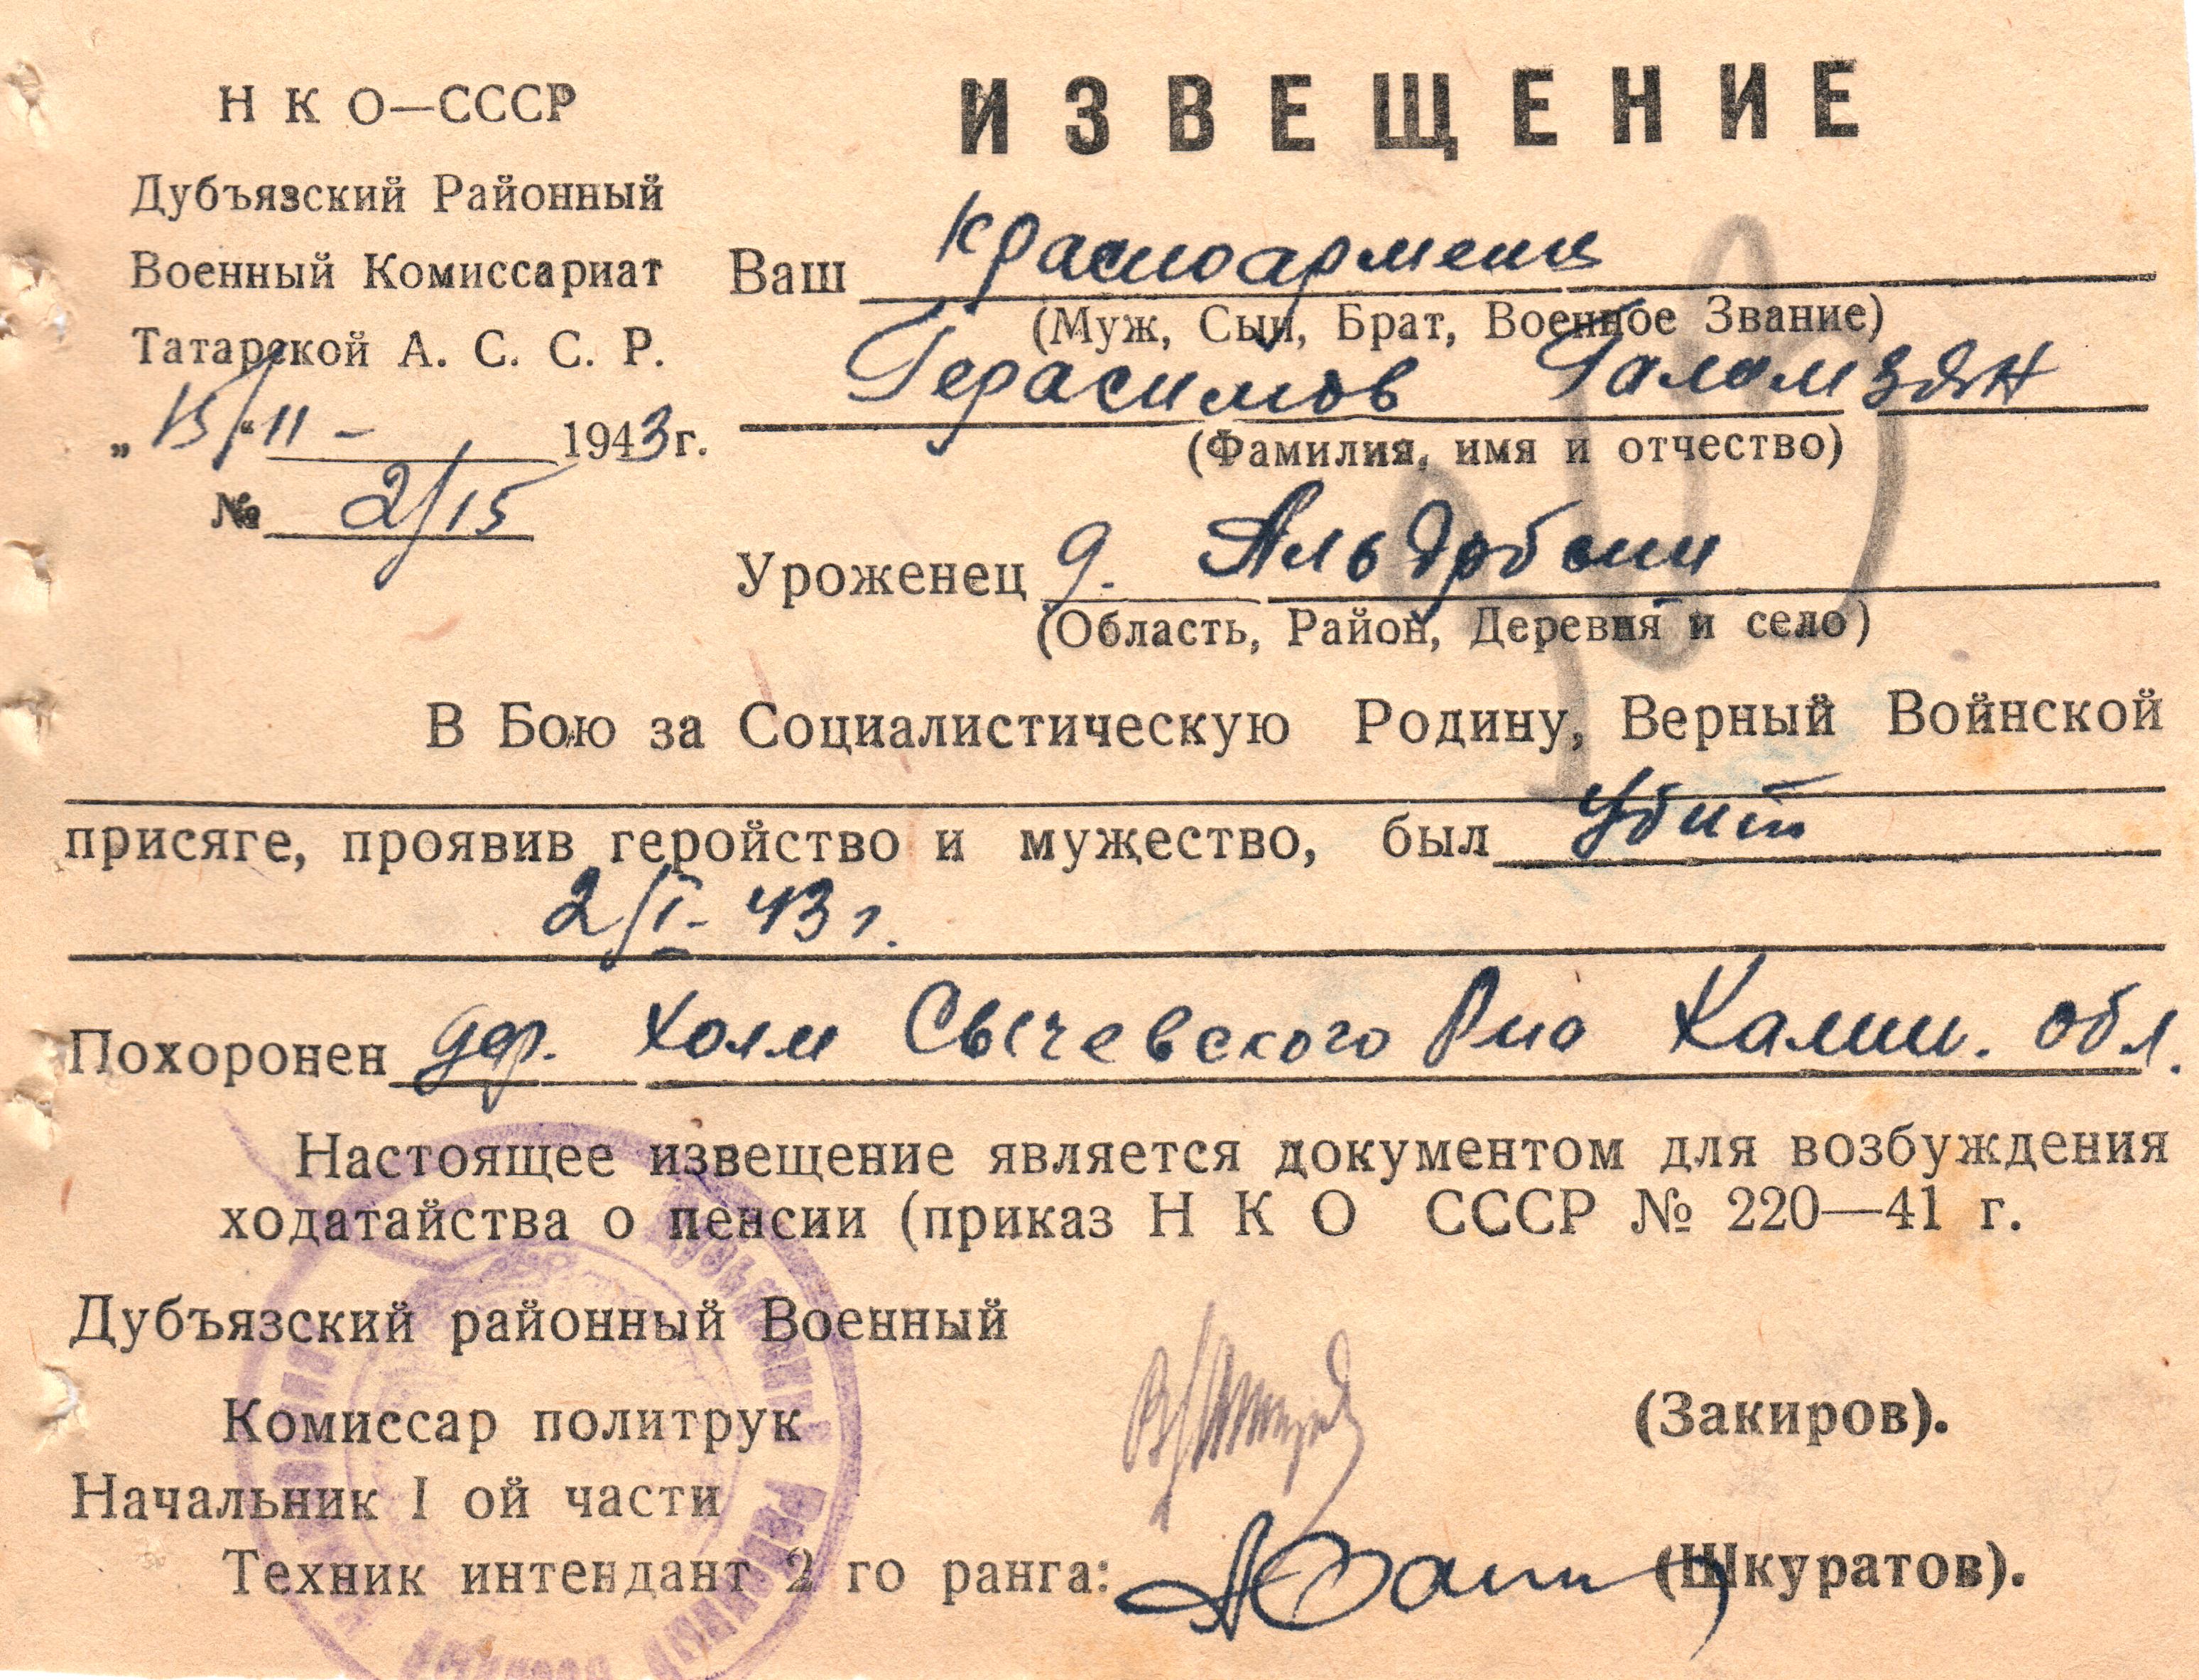 Н К О—СССР
Дубъязский Районный
Военный Комиссариат
Татарской А. С. С. Р.
„15/“ II - 1943 г.
№ 2/15
ИЗВЕЩЕНИЕ
Ваш красноармеец
(Муж, Сын, Брат, Военное Звание)
Герасимов Галимзян
(Фамилия, имя и отчество)
Уроженец д.
(Область, Район, Деревня и село)
В Бою за Социалистическую Родину, Верный Войнской
присяге, проявив геройство и мужество, был убит
2/I- 43 г.
Похоронен дер. Холм Сычевского Рна Калин. обл.
Настоящее извещение является документом для возбуждения
ходатайства о пенсии (приказ Н К О СССР № 220—41 г.
Дубъязский районный Военный
Комиссар политрук (Закиров).
Начальник I ой части
Техник интендант 2 го ранга: (Шкуратов).